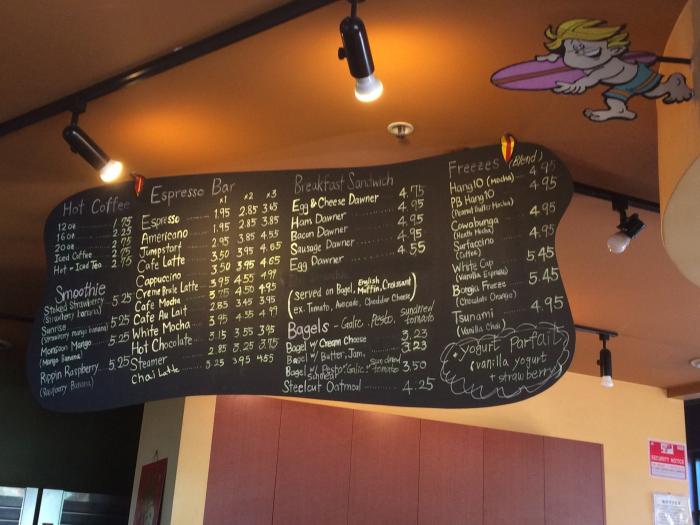 Hot Coffee
12oz 1.75
16oz 2.25
20oz 2.75
Iced Coffee 2.75
Hot - Iced Tea 2.75
Smoothie
Stoked Strawberry 5.25
(Strawberry banana)
Sunrise 5.25
(Strawberry mango banana)
Monsoon Mango 5.25
(Mango Banana)
Rippin Raspberry 5.25
(Raspberry Banana)
Espresso Bar
x1 x2 x3
Espresso 1.95 2.85 3.65
Americano 1.95 2.85 3.85
Jumpstart 2.95 3.85 4.55
Cafe Latte 3.50 3.95 4.65
Cappuccino 3.50 3.95 4.65
Creme Brule Latte 3.95 4.55 4.99
Cafe Mocha 3.75 4.50 4.95
Cafe Au Lait 2.85 3.45 3.95
White Mocha 3.95 4.55 4.99
Hot Chocolate 3.15 3.55 3.95
Steamer 2.85 3.25 3.75
Chai Latte 3.25 3.95 4.65
Breakfast Sandwich
Egg & Cheese Dawner 4.75
Ham Dawner 4.95
Bacon Dawner 4.95
Sausage Dawner 4.95
Egg Dawner 4.55
(served on Bagel, English Muffin, Croissant)
ex. Tomato, Avocado, Cheddar Cheese
Bagels - Galic, Pesto, sundried tomato
Bagel w/ Cream Cheese 3.23
Bagel w/ Butter, Jam, 3.23
Bagel w/ Pesto, Galic, sundried tomato 3.50
spread
Steelcut Oatmeal 4.25
Freezes (Blend)
Hang10 (mocha) 4.95
PB Hang10 4.95
(Peanut butter Mocha)
Cowabunga 4.95
(Heath Mocha)
Surfaccino 4.95
(Coffee)
White Cap 5.45
(Vanilla Espresso)
Borgia Freeze 5.45
(Chocolate Orange)
Tsunami 4.95
(Vanilla Chai)
yogurt Parfait
(vanilla yogurt
+ strawberry)
SECURITY NOTICE
NOTICE